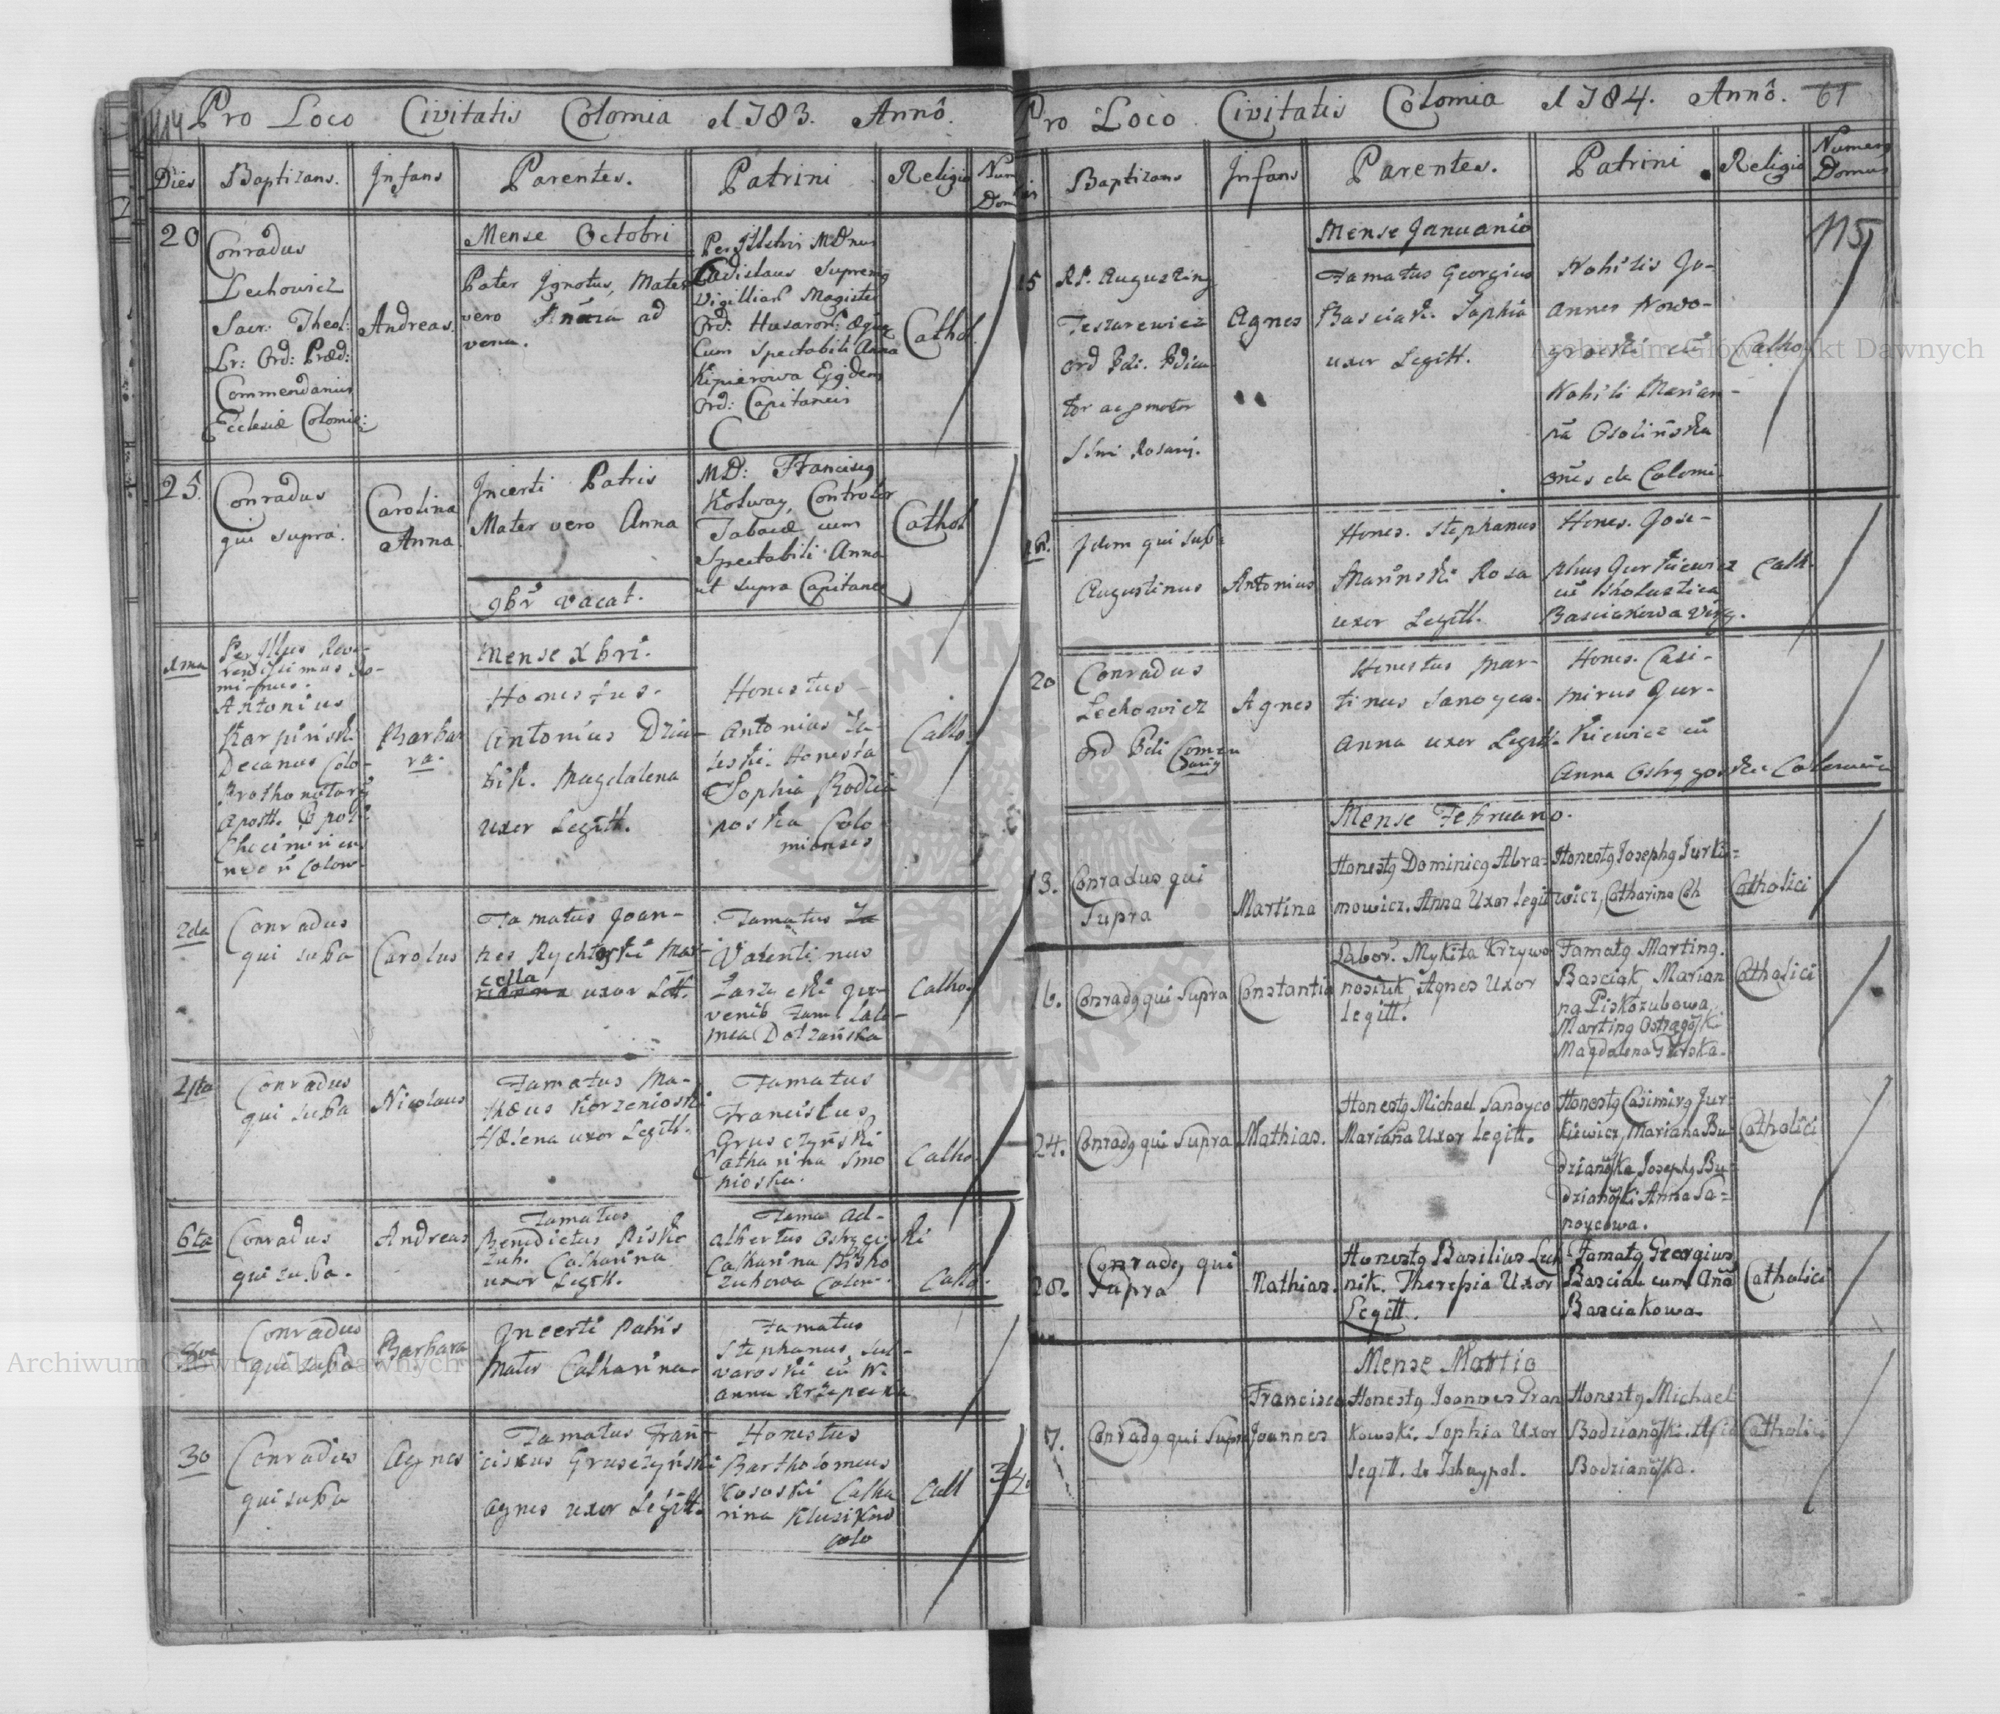 114 Pro Loco Civitatis Colomia 1783. Annô.
Dies
Baptizans.
Infans
Parentes.
Patrini
Religio
Num
Dom
20
Conradus
Lechowicz
Sacr: Theol:
Lr: Ord: Præd:
Commendarius
Ecclesiæ Colomię:
Andreas.
Mense Octobri
Pater Ignotus, Mater
vero
ad
vena.
Per Illstris MDnus
Ladislaus Supremg
Vigilliar Magister
Ord: Husaror: æque
Cum Spectabili Anna
Ord: Capitaneis
Cathol
25.
Conradus
qui supra.
Carolina
Anna
Incerti Patris
Mater vero Anna
9br vacat.
MD: Franciscg
Kolway, Controlor
Tabacæ cum
Spectabili Anna
ut supra Capitanea
Cathol
xma
Per Illus Reve-
rendissimus Do-
minus.
Antonius
Karpinski
Decanus Colo-
Prothonotarg
Apostl.
Barba
ra.
Mense Xbri.
Honestus.
Antonius Dziu-
bik. Magdalena
uxor Legitt.
Honestus
Antonius Za-
leski. Honesta
Sophia Rodzia
noska Colo
mienses
Catho.
2da
Conradus
qui supa
Carolus
Famatus Joan-
nes Rychloski Mar-
cella
uxor Lett.
Famatus Za
Valentinus
Zarzecki
Dolzańska
Catho.
4ta
Conradus
qui supa
Nicolaus
Famatus Ma-
thæus Korzenioski
Hælena uxor Legitt.
Famatus
Franciscus
Grusczyński
Catharina Smo
nioska.
Catho.
6ta
Conradus
qui supa.
Andreas
Famatus
Benedictus Pisko
zub. Catharina
uxor Legitt.
Fama Ad-
albertus
Catharina Pisko
zubowa Colom
Catho.
Conradus
qui supa
Barbara
Incerti Patris
Mater Catharina.
Famatus
Stephanus Sul-
varoski cū M
anna Krzepecka
30
Conradus
qui supa
Agnes
Famatus Fran-
ciscus Grusczyński
Agnes uxor Legitt.
Honestus
Bartholomeus
Kososki Catha
rina
Colo
Cath
34.
Pro Loco Civitatis Colomia 1784. Annô. 61
Baptizans
Infans
Parentes.
Patrini
Religio
Numerg
Domus
115
15
RP. Augusting
Teszarewicz
Ord Pdi. Pdica
tor ac pmotor
SSmi Rosarij.
Agnes
Mense Januario
Famatus Georgius
Basciak. Sophia
uxor Legitt.
Nobilis Jo-
annes Nowo-
grocki cū
Nobili Marian-
nā Osolińska
ones de Colomi
Catho
Idem qui sup
Augustinus
Antonius
Hones. Stephanus
Marinski Rosa
uxor Legitt.
Hones. Jose-
phus Jurkiewicz
cū Skolastica
Basciakowa Virg.
Cath.
20
Conradus
Lechowicz
Ord Pdi Comen
Agnes
Honestus Mar-
tinus Sanoyca.
Anna uxor Legitt.
Hones. Casi-
mirus Jur-
kiewicz cū
Anna
13.
Conradus qui
Supra
Martina
Mense Februario.
Honestg Dominicg Abra-
mowicz. Anna Uxor legit
Honestg Josephg Jurki-
wicz, Catharina Coh
Catholici
16.
Conradg qui Supra
Constantia
Labor. Mykita Krzywo
nosiuk Agnes Uxor
legitt.
Famatg Marting.
Basciak, Marian
na Piskozubowa,
Marting Ostragoski
Magdalena Turska.
Catholici
24.
Conradg qui Supra
Mathias.
Honestg Michael Sanoyco
Mariana Uxor legitt.
Honestg Casimirg Jur-
kiewicz, Mariana Bu-
dziańska Josephg Bu-
dziański Anna Sa-
noycowa.
Catholici
28.
Conradg qui
Supra
Mathias.
Honestg Basilius Luch
nik. Theresia Uxor
Legitt.
Famatg Georgius
Basciak cum Anā
Basciakowa.
Catholici
7.
Conradg qui Supra
Francisca
Joannes
Mense Martio
Honestg Joannes Gran
kowski. Sophia Uxor
legitt. de
Honestg Michael
Bodziański.
Bodziańska.
Catholici
Archiwum Główne Akt Dawnych
Archiwum Główne Akt Dawnych